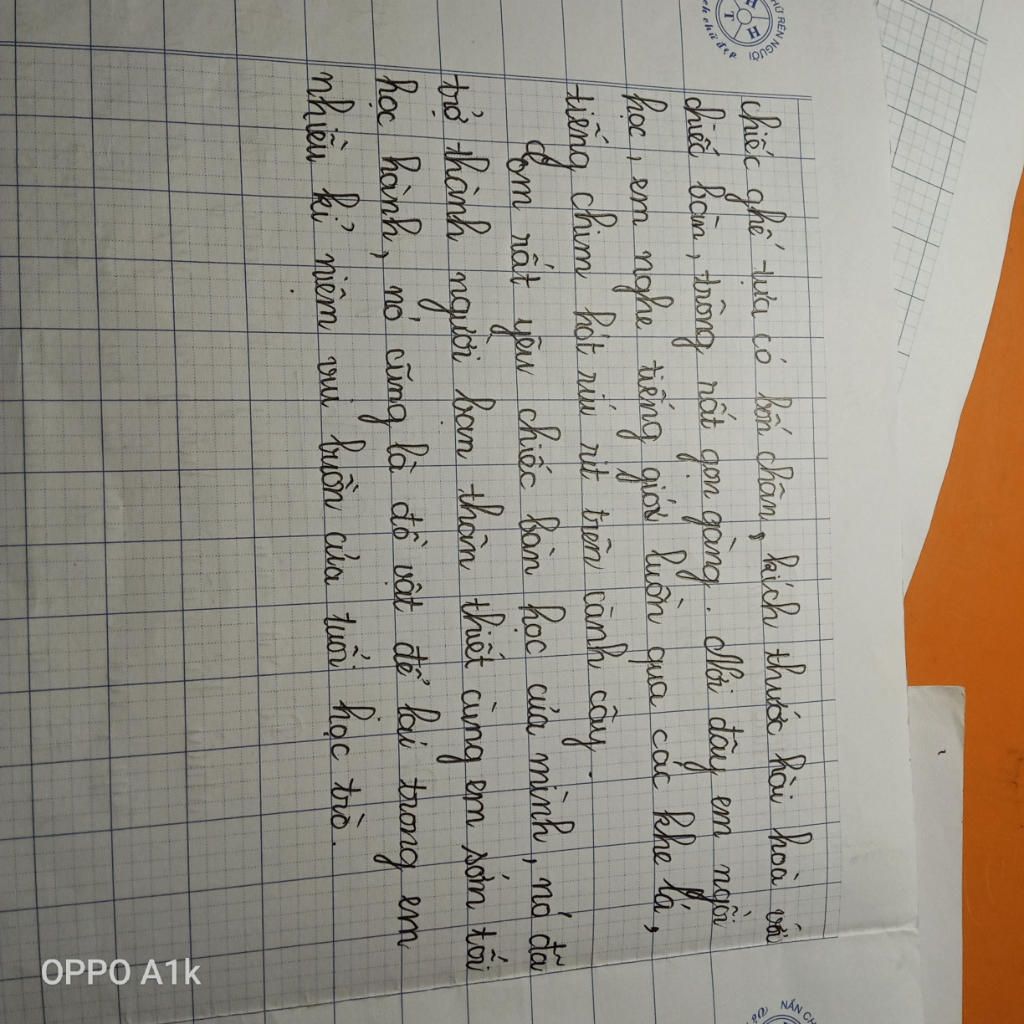 chiếc ghế tựa có bốn chân, kích thước hài hoà với
chiếc bàn, trông rất gọn gàng. Nơi đây em ngồi
học, em nghe tiếng gió luồn qua các khe lá,
tiếng chim hót ríu rít trên cành cây.
Em rất yêu chiếc bàn học của mình, nó đã
trở thành người bạn thân thiết cùng em sớm tối
học hành, nó cũng là đồ vật để lại trong em
nhiều kỉ niệm vui buồn của tuổi học trò.
OPPO A1k